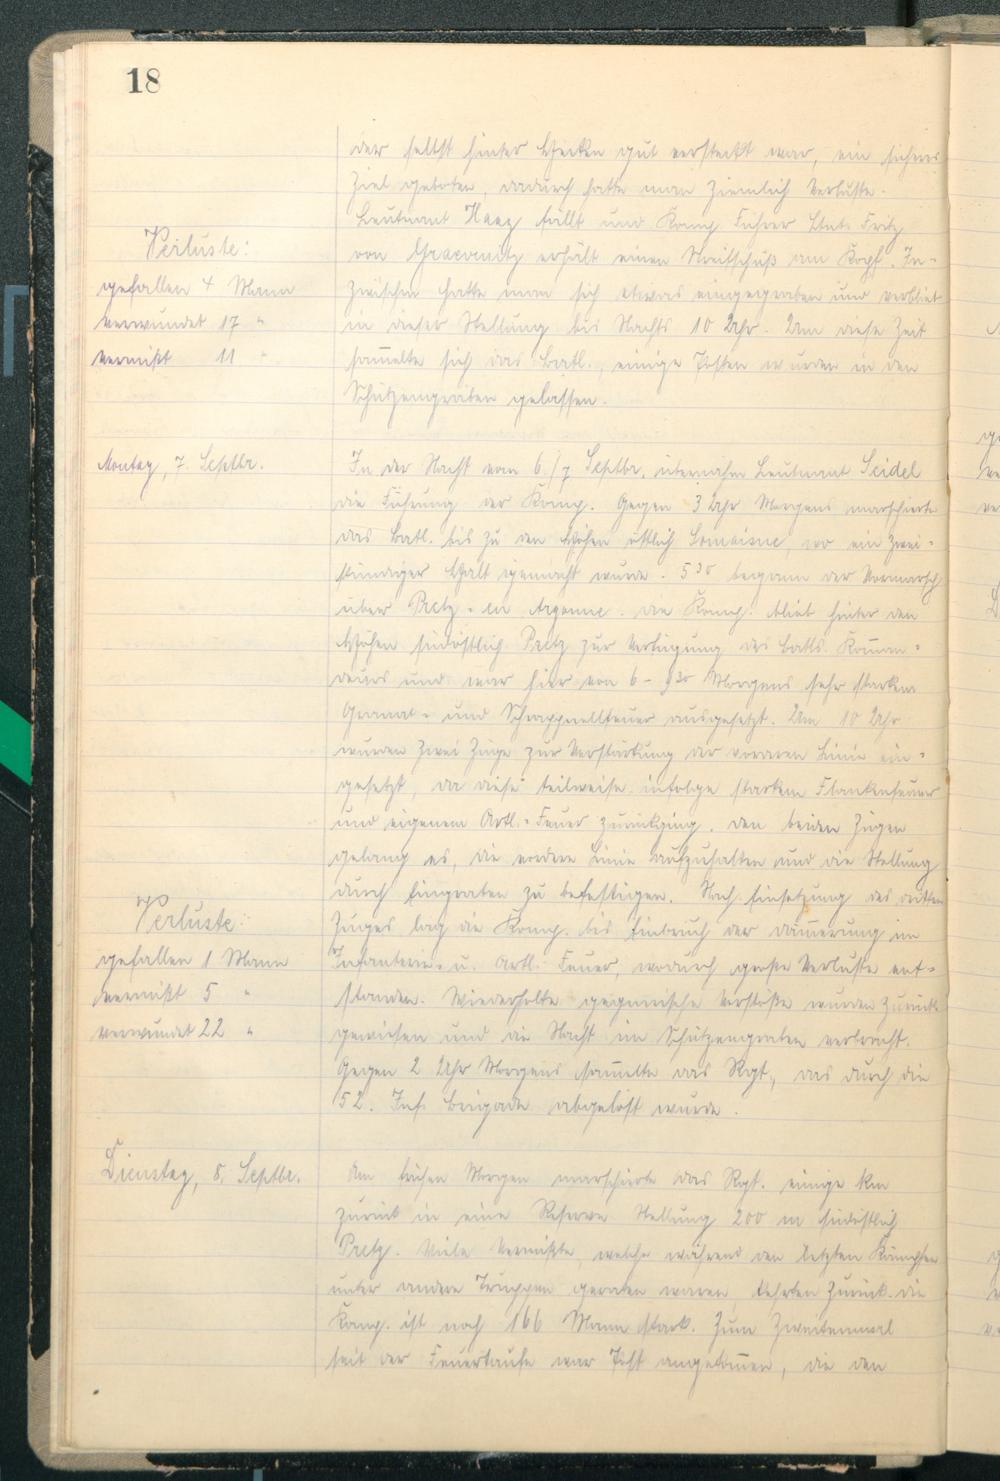 18
der selbst hinter Hecken gut versteckt war, ein sicheres
Ziel geboten, dadurch hatte man ziemlich Verluste.
Leutnant Haag fällt und Komp. Führer Ltnt. Fritz
von Graevenitz erhält einen Streifschuß am Kopf. In-
zwischen hatte man sich etwas eingegraben und verblieb
in dieser Stellung bis Nachts 10 Uhr. Um diese Zeit
sam̄elte sich das Batl., einige Posten wurden in den
Schützengräben gelassen.
Verluste:
gefallen 4 Mann
verwundet 17 "
vermißt 11 "
Montag, 7. Septbr.
In der Nacht vom 6./7 Septbr. übernahm Leutnant Seidel
die Führung der Komp. Gegen 3 Uhr Morgens marschierte
das Batl. bis zu den Höhen östlich Somaisne, wo ein zwei-
stündiger Halt gemacht wurde. 5³⁰ begann der Vormarsch
über Pretz-en Argonne. die Komp. blieb hinter den
Höhen südöstlich Pretz zur Verfügung des Batls. Kom̄an-
deurs und war hier von 6 - 9³⁰ Morgens sehr starkem
Granat- und Schrappnellfeuer ausgesetzt. Um 10 Uhr
wurden zwei Züge zur Verstärkung der vorderen Linie ein-
gesetzt, da diese teilweise infolge starkem Flankenfeuer
und eigenem Artl.-Feuer zurückging. den beiden Zügen
gelang es, die vordere Linie aufzuhalten und die Stellung
durch Eingraben zu befestigen. Nach Einsetzung des dritten
Zuges lag die Komp. bis Einbruch der däm̄erung im
Infanterie- u. Artl. Feuer, wodurch große Verluste ent-
standen. Wiederholte gegnerische Vorstöße wurden zurück
gewiesen und die Nacht im Schützengraben verbracht.
Gegen 2 Uhr Morgens sam̄elte das Rgt., das durch die
52. Inf. Brigade abgelöst wurde.
Verluste:
gefallen 1 Mann
vermißt 5 "
verwundet 22 "
Dienstag, 8. Septbr.
Am frühen Morgen marschierte das Rgt. einige km
zurück in eine Reserve Stellung 200 m südöstlich
Pretz. Viele Vermißte, welche während den letzten Kämpfen
unter andere Truppen geraten waren, kehrten zurück. die
Komp. ist noch 166 Mann stark. Zum zweitenmal
seit der Feuertaufe war Post angekom̄en, die den